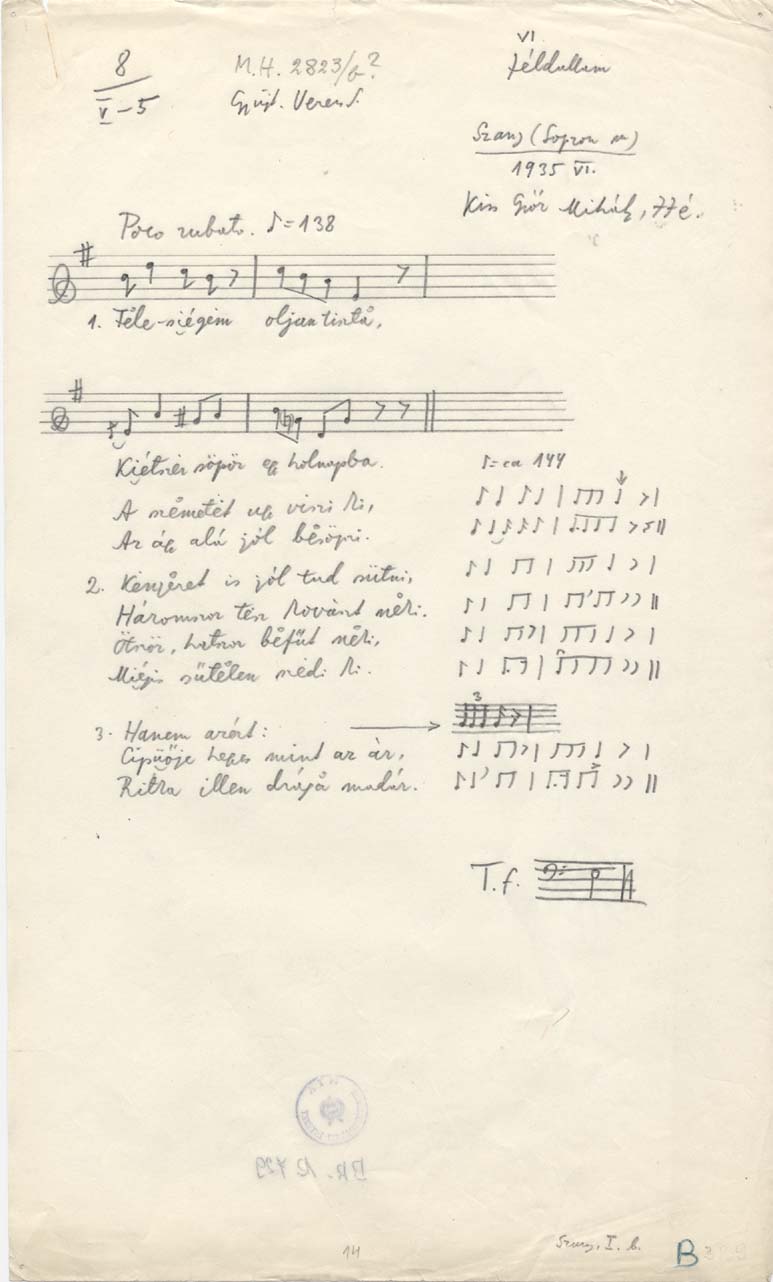 8
V–5
M.H. 2823/b?
Gyűjt. Veress S.
VI
féldallam
Szany (Sopron m)
1935 VI.
Kiss Győr Mihály, 77é.
Poco rubato. ♪=138
1. Féle-siégëm oljan tiszta,
Kiétszër söpör egy holnapba.
♪=ca 144
A szëmetët
Az ágy alá jól bësöpri.
2. Kënyeret is jól tud sütni,
Háromszor tësz kovászt neki.
Ötször, hatszor bëfűt neki,
Miégis sütetlen szedi ki.
3. Hanem azért:
3
Cipüője hegyes mint az ár,
Ritka illen drága madár.
T.f.
BR. 12 729
14
Szany, I. b.
B